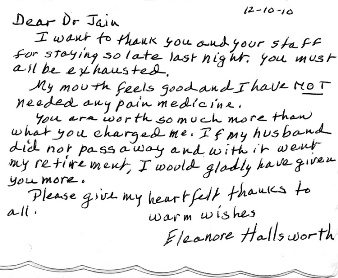 12-10-10
Dear Dr Jain
I want to thank you and your staff
for staying so late last night. you must
all be exhausted.
My mouth feels good and I have NOT
needed any pain medicine.
You are worth so much more than
what you charged me. If my husband
did not pass away and with it went
my retirement, I would gladly have given
you more.
Please give my heartfelt thanks to
all. warm wishes
Eleanore Hallsworth